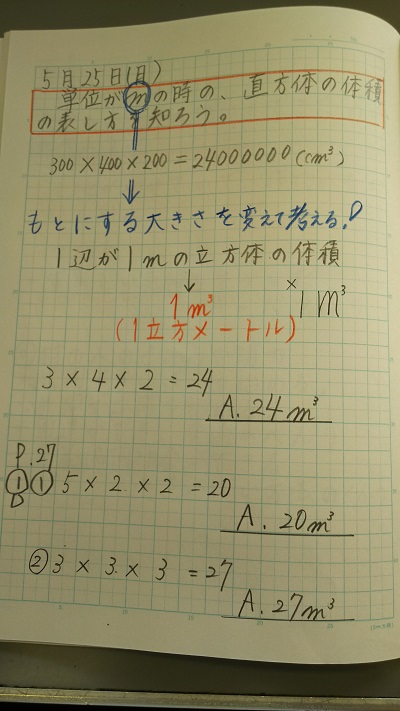 5月25日(月)
単位がmの時の、直方体の体積
の表し方を知ろう。
300×400×200=24000000(cm³)
もとにする大きさを変えて考える!
1辺が1mの立方体の体積
1m³
×1M³
(1立方メートル)
3×4×2=24
A. 24m³
P.27
① ① 5×2×2=20
A. 20m³
② 3×3×3=27
A. 27m³